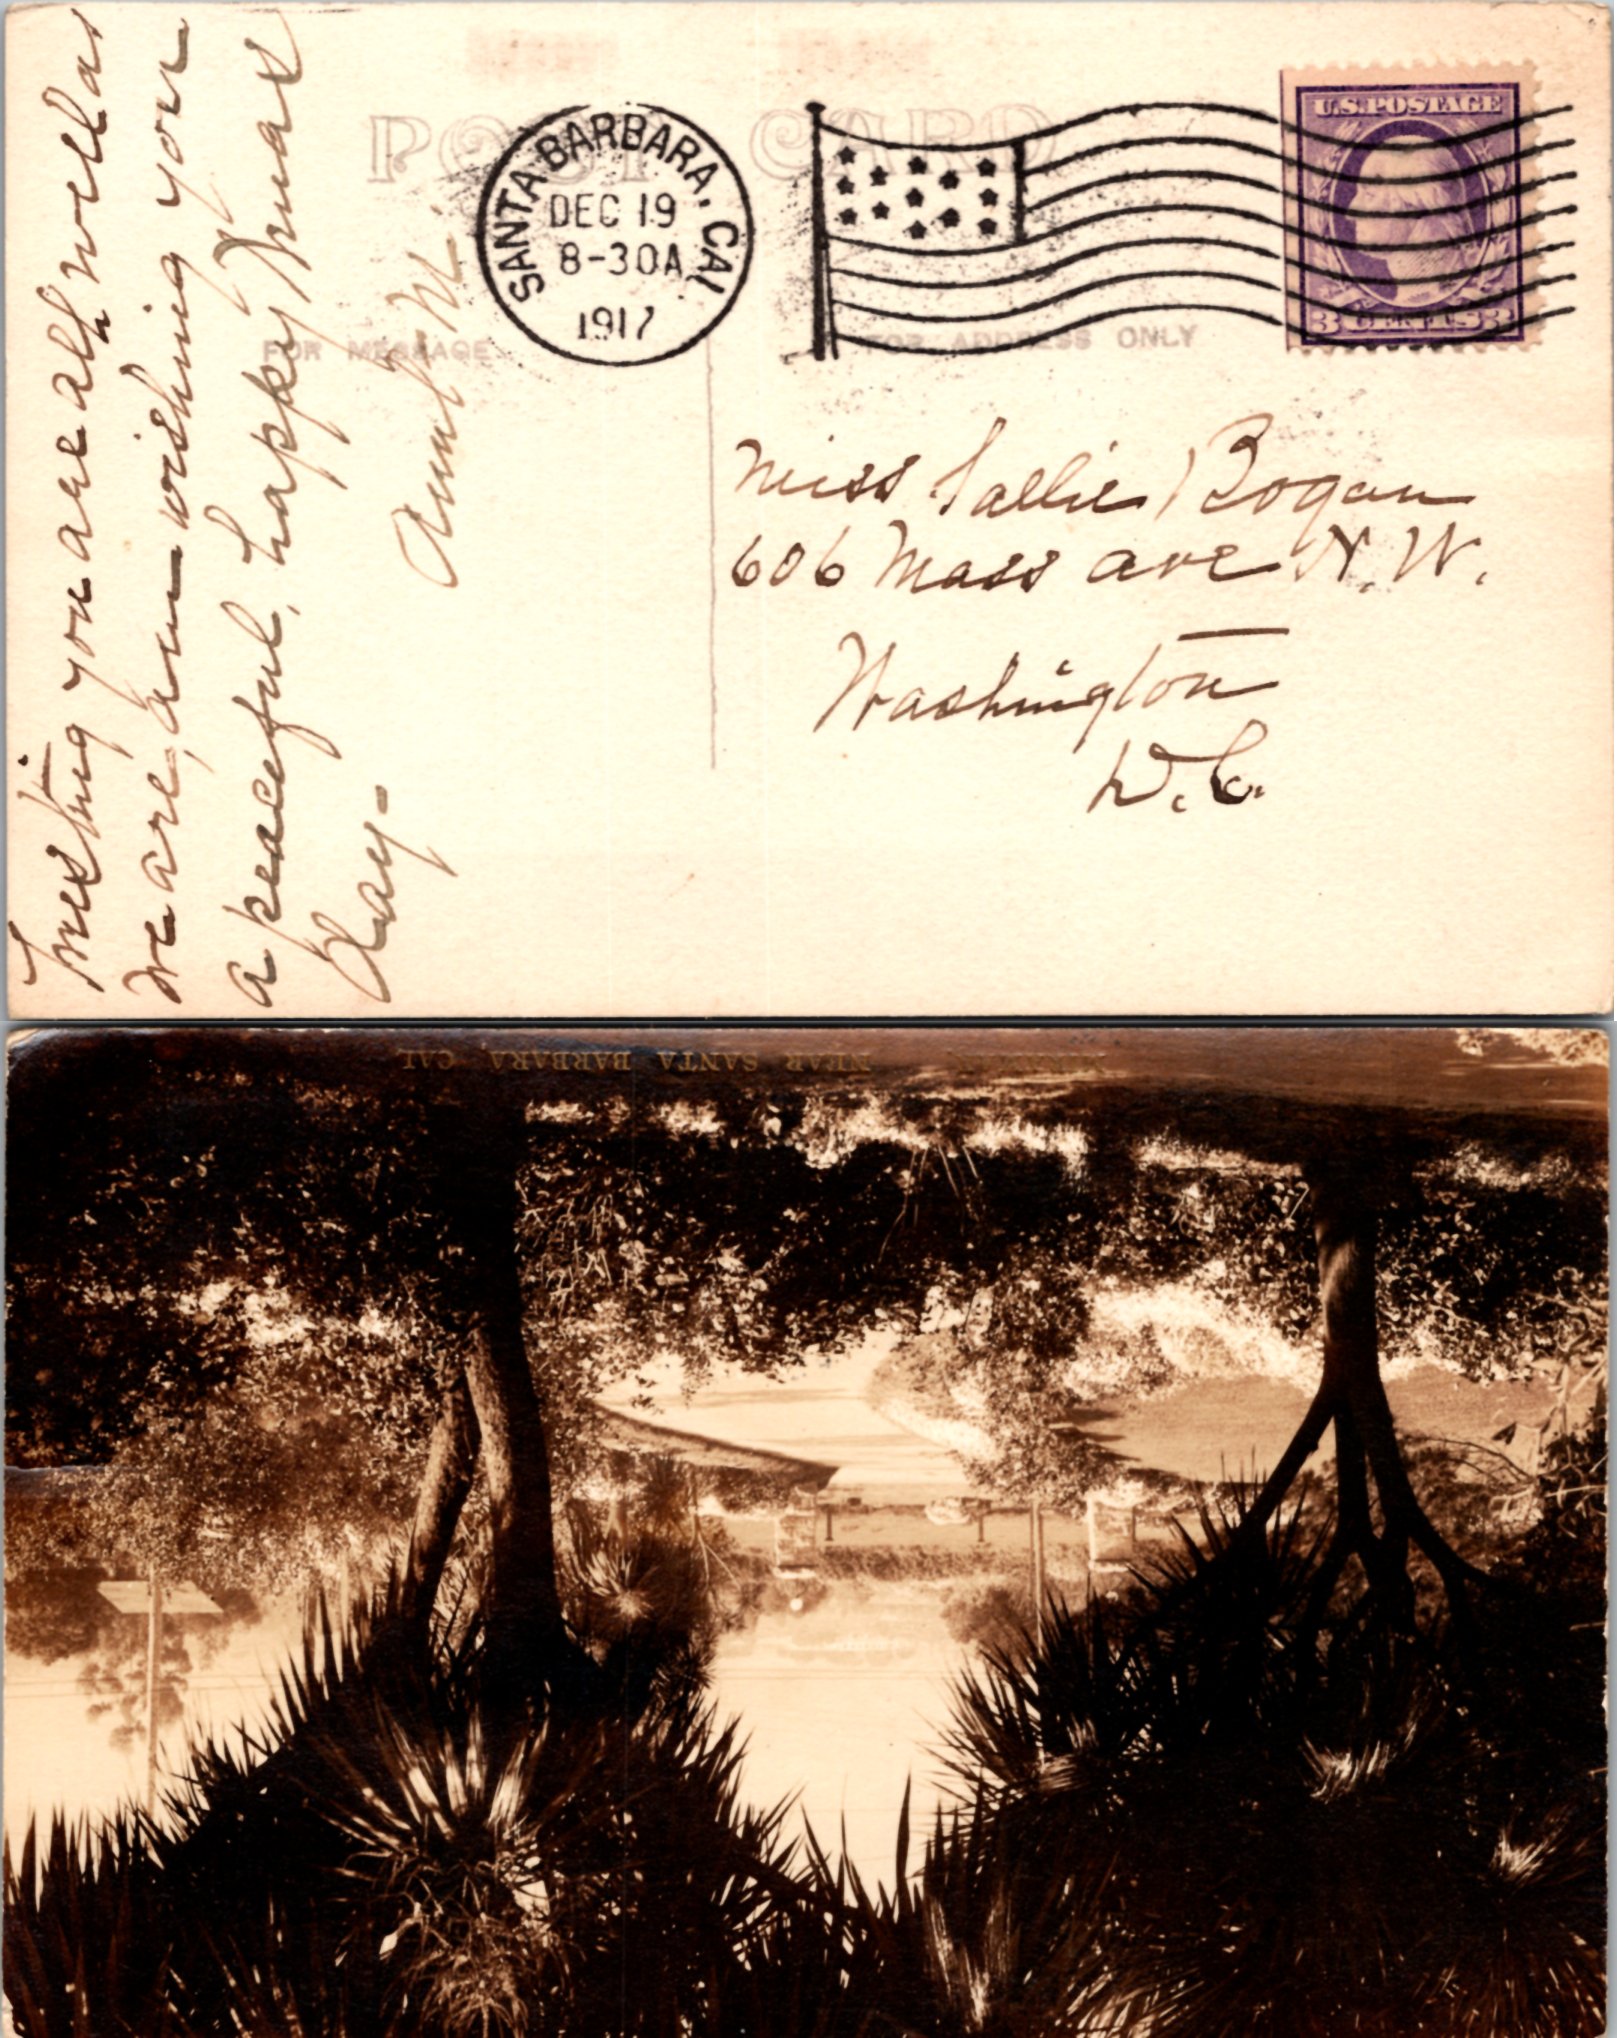 POST CARD
SANTA BARBARA, CAL
DEC 19
8-30A
1917
U.S. POSTAGE
3 CENTS 3
FOR MESSAGE
FOR ADDRESS ONLY
Trusting you are all, well as
we are, am wishing you
a peaceful, happy Xmas
Day-
Aunt M.
Miss Sallie Bogan
606 Mass Ave N.W.
Washington
D.C.
MIRAMAR, NEAR SANTA BARBARA CAL